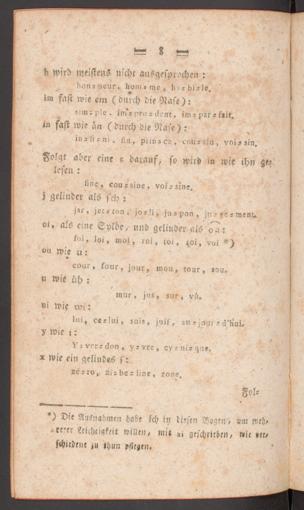 — 8 —
h wird meistens nicht ausgesprochen:
hon=neur, hom=me, ha=bi=le.
im fast wie em (durch die Nase):
sim=ple, im=pru=dent, im=par=fait.
in fast wie än (durch die Nase):
in=fi=ni, fin, prin=ce, cou=sin, voi=sin.
Folgt aber eine e darauf, so wird in wie ihn ge=
lesen:
fine, cou=sine, voi=sine.
j gelinder als sch:
jar, jet=ton, jo=li, ju=pon, ju=ge=ment.
oi, als eine Sylbe, und gelinder als oa:
foi, loi, moi, roi, toi, soi, voi *)
ou wie u:
cour, four, jour, mou, tour, sou.
u wie üh:
mur, jus, sur, vu.
ui wie wi:
lui, ce=lui, suis, juif, au=jour=d'hui.
y wie i:
Y=ver=don, y=vre, cy=ni=que.
z wie ein gelindes s:
zé=ro, zi=be=line, zone.
Fol=
*) Die Ausnahmen habe ich in diesen Bogen, um meh=
rerer Leichtigkeit willen, mit ai geschrieben, wie ver=
schiedene zu thun pflegen.